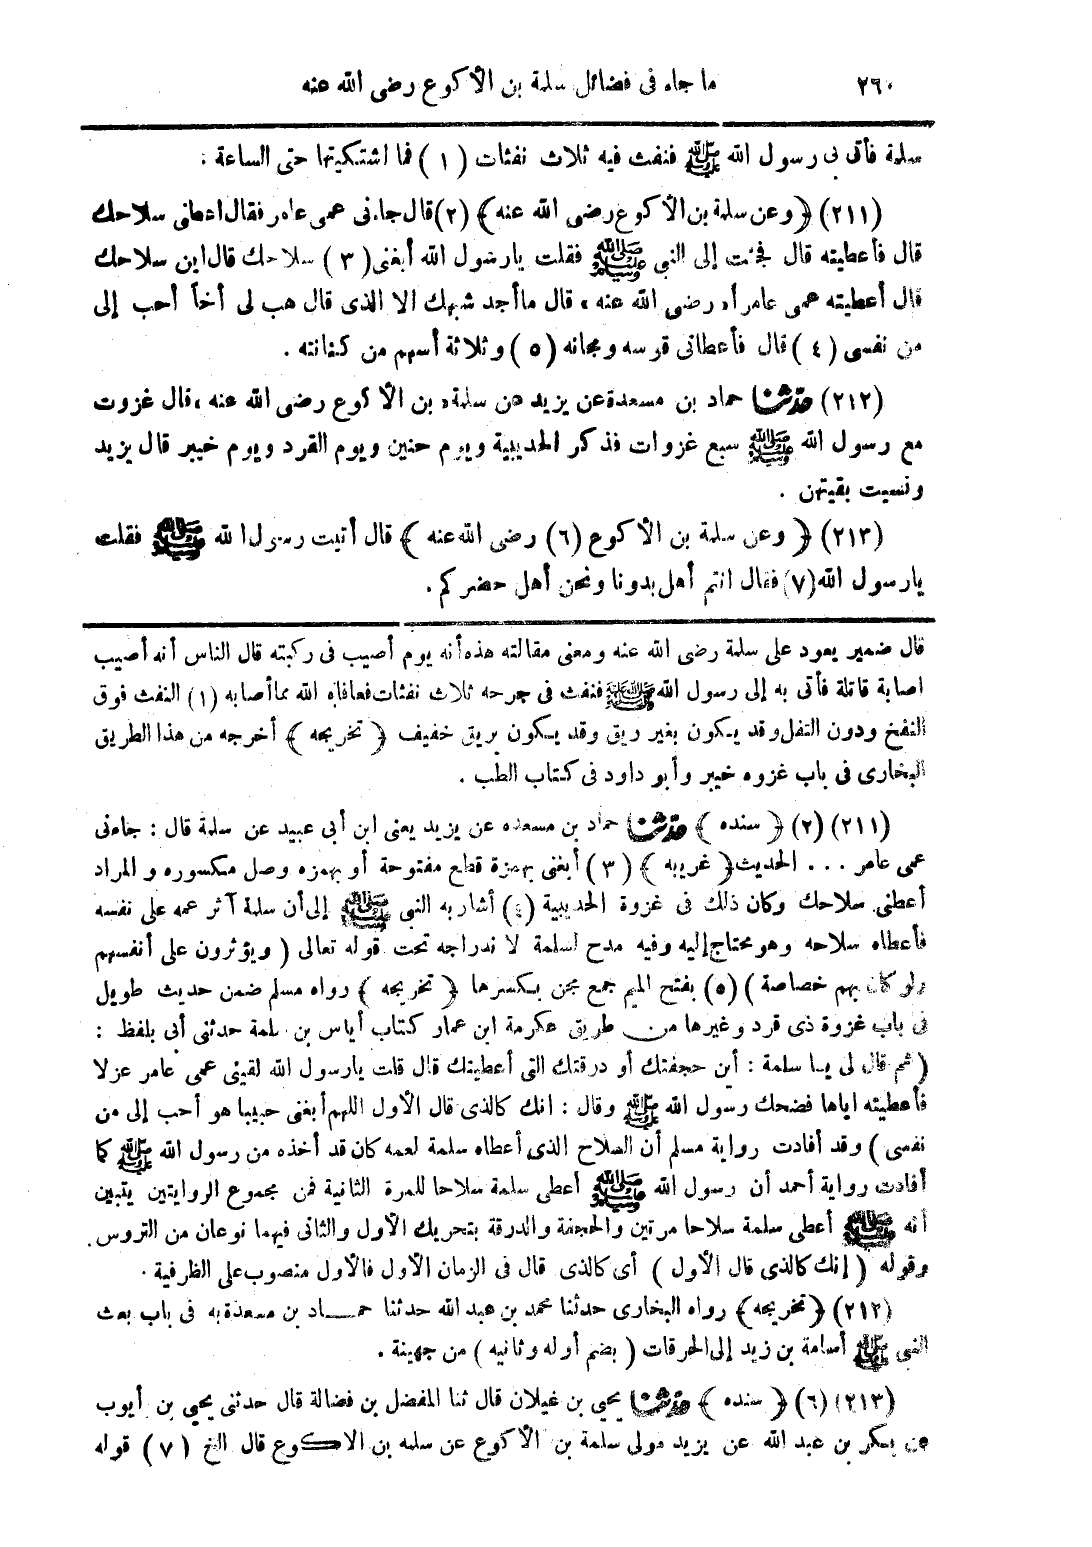 ٢٦٠ ما جاء فى فضائل سلمة بن الأكوع رضى الله عنه
سلمة فأتى بى رسول الله ﷺ فنفث فيه ثلاث نفثات (١) فما اشتكيتها حتى الساعة .
(٢١١) ﴿ وعن سلمة بن الأكوع رضى الله عنه ﴾ (٢) قال جاءنى عمى عامر فقال اعطنى سلاحك
قال فأعطيته قال فجئت إلى النبى ﷺ فقلت يارسول الله أبغنى (٣) سلاحك قال اين سلاحك
قال أعطيته عمى عامر أ رضى الله عنه ، قال ماأجد شبهك الا الذى قال هب لى أخاً أحب إلى
من نفسى (٤) قال فأعطانى قوسه ومجانه (٥) وثلاثة أسهم من كنانته .
(٢١٢) حدثنا حماد بن مسعدة عن يزيد عن سلمة بن الأكوع رضى الله عنه ، قال غزوت
مع رسول الله ﷺ سبع غزوات فذكر الحديبية ويوم حنين ويوم القرد ويوم خيبر قال يزيد
ونسيت بقيتهن .
(٢١٣) ﴿ وعن سلمة بن الأكوع (٦) رضى الله عنه ﴾ قال أتيت رسول الله ﷺ فقلت
يارسول الله (٧) فقال انتم أهل بدونا ونحن أهل حضركم .
قال ضمير يعود على سلمة رضى الله عنه ومعنى مقالته هذه أنه يوم أصيب فى ركبته قال الناس أنه أصيب
اصابة قاتلة فأتى به إلى رسول الله ﷺ فنفث فى جرحه ثلاث نفثات فعافاه الله مما أصابه (١) النفث فوق
النفخ ودون التفل وقد يكون بغير ريق وقد يكون بريق خفيف ﴿ تخريجه ﴾ أخرجه من هذا الطريق
البخارى فى باب غزوه خيبر وأبو داود فى كتاب الطب .
(٢١١) (٢) ﴿ سنده ﴾ حدثنا حماد بن مسعده عن يزيد يعنى ابن أبى عبيد عن سلمة قال : جاءنى
عمى عامر ... الحديث ﴿ غريبه ﴾ (٣) أبغنى بهمزة قطع مفتوحة أو بهمزه وصل مكسوره والمراد
أعطنى سلاحك وكان ذلك فى غزوة الحديبية (٤) أشار به النبى ﷺ إلى أن سلمة آثر عمه على نفسه
فأعطاه سلاحه وهو محتاج إليه وفيه مدح لسلمة لاندراجه تحت قوله تعالى ( ويؤثرون على أنفسهم
ولو كان بهم خصاصة ) (٥) بفتح الميم جمع مجن بكسرها ﴿ تخريجه ﴾ رواه مسلم ضمن حديث طويل
فى باب غزوة ذى قرد وغيرها من طريق عكرمة ابن عمار كتاب أياس بن سلمة حدثنى أبى بلفظ :
( ثم قال لى يا سلمة : أين حجفتك أو درقتك التى أعطيتك قال قلت يارسول الله لقينى عمى عامر عزلا
فأعطيته اياها فضحك رسول الله ﷺ وقال : انك كالذى قال الأول اللهم أبغنى حبيبا هو أحب إلى من
نفسى ) وقد أفادت رواية مسلم أن السلاح الذى أعطاه سلمة لعمه كان قد أخذه من رسول الله ﷺ كما
أفادت رواية أحمد أن رسول الله ﷺ أعطى سلمة سلاحا للمرة الثانية فمن مجموع الروايتين يتبين
أنه ﷺ أعطى سلمة سلاحا مرتين والحجفة والدرقة بتحريك الأول والثانى فيهما نوعان من التروس .
وقوله ( إنك كالذى قال الأول ) أى كالذى قال فى الزمان الأول فالأول منصوب على الظرفية .
(٢١٢) ﴿ تخريجه ﴾ رواه البخارى حدثنا محمد بن عبد الله حدثنا حماد بن مسعدة به فى باب بعث
النبى ﷺ أسامة بن زيد إلى الحرقات ( بضم أوله وثانيه ) من جهينة .
(٢١٣) (٦) ﴿ سنده ﴾ حدثنا يحيى بن غيلان قال ثنا المفضل بن فضالة قال حدثنى يحيى بن أيوب
عن بكر بن عبد الله عن يزيد مولى سلمة بن الأكوع عن سلمه بن الاكوع قال الخ (٧) قوله